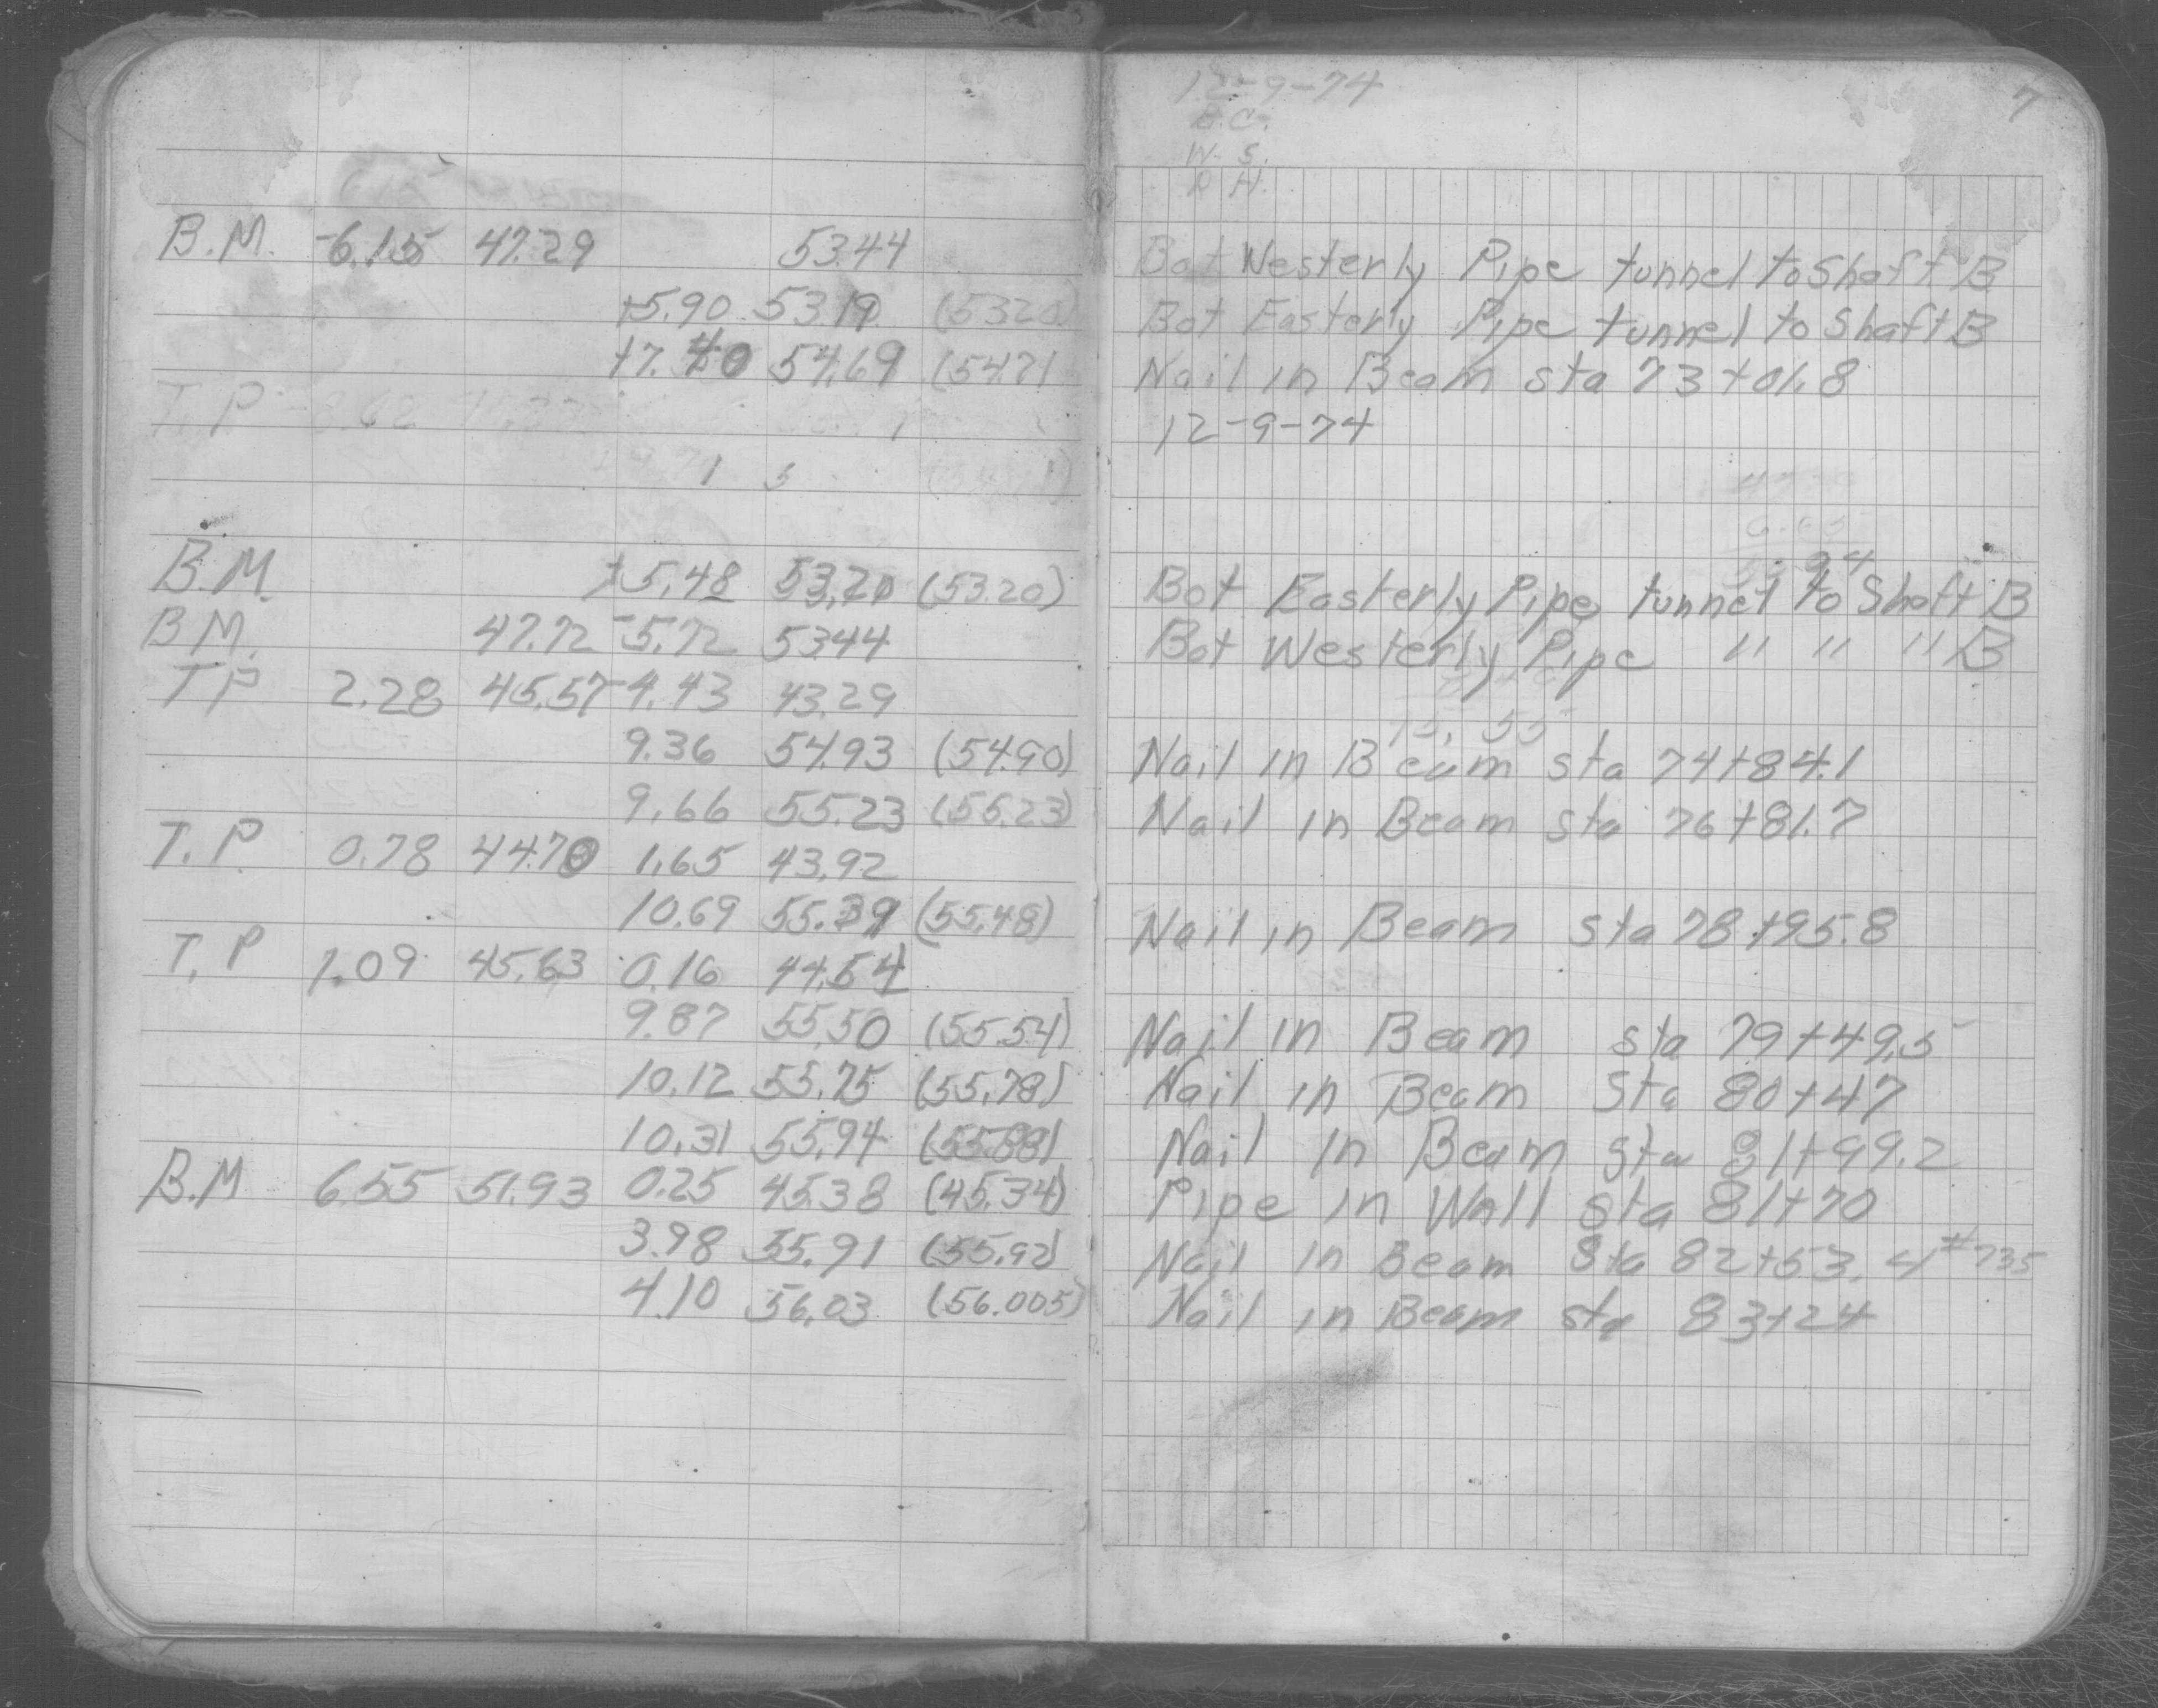 12-9-74
7
B.C.
W. S.
H.
B.M. -6.15 47.29 53.44 Bot Westerly Pipe tunnel to Shaft B
+5.90 53.19 (53.20) Bot Easterly Pipe tunnel to Shaft B
+7.40 54.69 (54.71 Nail in Beam sta 73+01.8
T. P 12-9-74
B.M. +5.48 53.20 (53.20) Bot Easterly Pipe tunnel to Shaft B
B M. 47.72 -5.72 53.44 Bot Westerly Pipe " " " B
T P 2.28 45.57 4.43 43.29
9.36 54.93 (54.90) Nail in Beam sta 74+84.1
9.66 55.23 (55.23) Nail in Beam sta 76+81.7
T. P. 0.78 44.70 1.65 43.92
10.69 55.39 (55.48) Nail in Beam sta 78+95.8
T. P 1.09 45.63 0.16 44.54
9.87 55.50 (55.54) Nail in Beam sta 79+49.5
10.12 55.75 (55.78) Nail in Beam Sta 80+47
10.31 55.94 (55.88) Nail in Beam Sta 81+99.2
B.M 6.55 51.93 0.25 45.38 (45.34) Pipe in Wall Sta 81+70
3.98 55.91 (55.92) Nail in Beam Sta 82+53.4 #735
4.10 56.03 (56.005) Nail in Beam sta 83+24